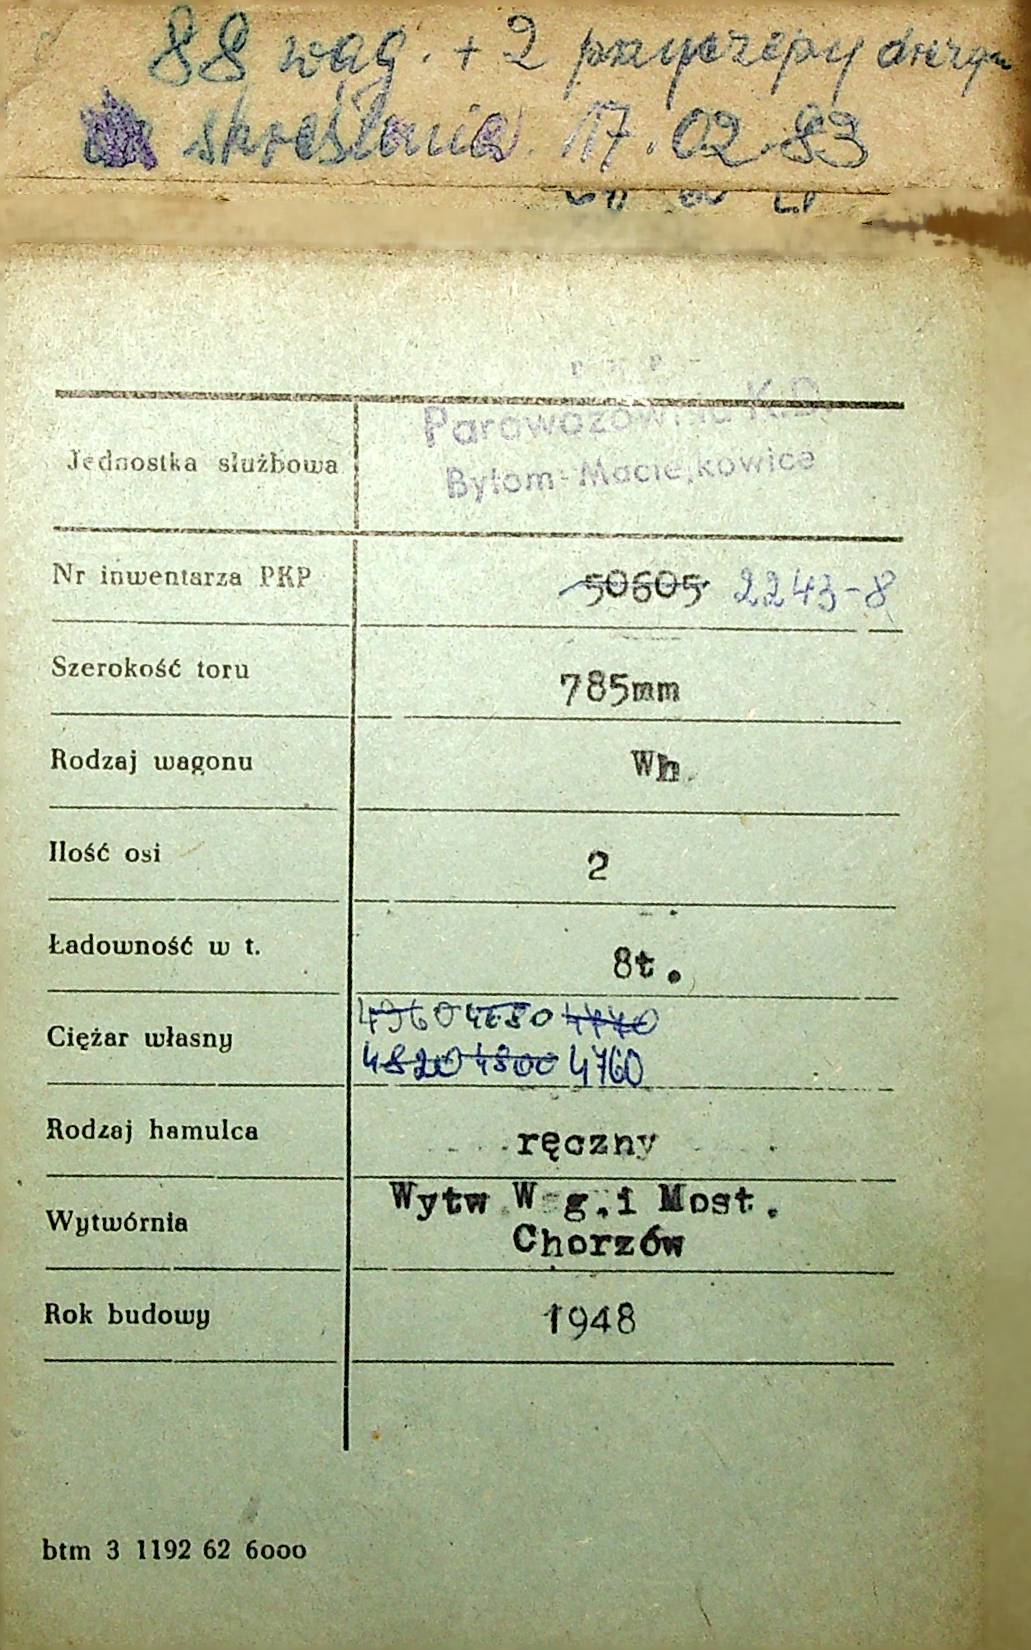 88 wag. + 2 przyczepy
skreślenia 17.02.83
Parowozownia K.D.
Jednostka służbowa
Bytom-Maciejkowice
Nr inwentarza PKP 50605 2243-8
Szerokość toru 785mm
Rodzaj wagonu Wh
Ilość osi 2
Ładowność w t. 8t.
4960 4780
Ciężar własny
4820 4800 4760
Rodzaj hamulca ręczny
Wytw W g.i Most.
Wytwórnia
Chorzów
Rok budowy 1948
btm 3 1192 62 6000